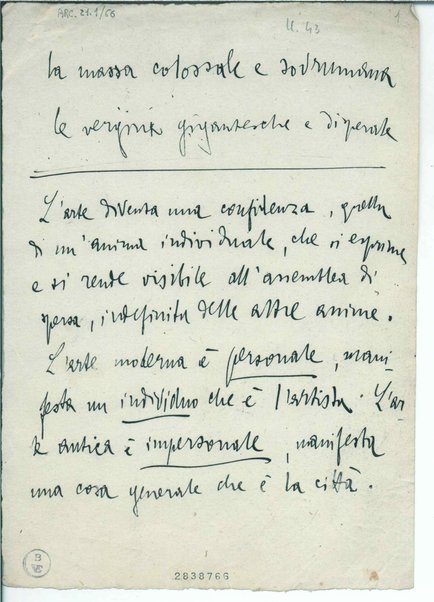 ARC. 21.1/66
U. 43
1
la massa colossale e sovrumana
le vergini gigantesche e disperate
L'arte diventa una confidenza, quella
di un'anima individuale, che si esprime
e si rende visibile all'assemblea di
spersa, indefinita delle altre anime.
L'arte moderna è personale, mani-
festa un individuo che è l'artista. L'ar-
te antica è impersonale, manifesta
una cosa generale che è la città.
B
VE
2838766